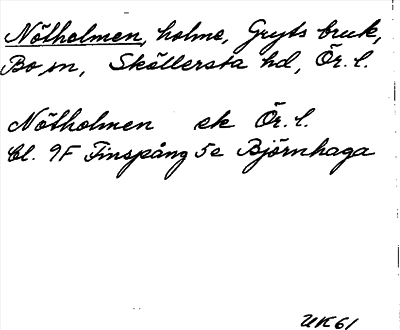 Nötholmen, holme, Gryts bruk,
Bo sn, Sköllersta hd, Ör. l.
Nötholmen ek Ör. l.
bl. 9F Finspång 5e Björnhaga
UK61